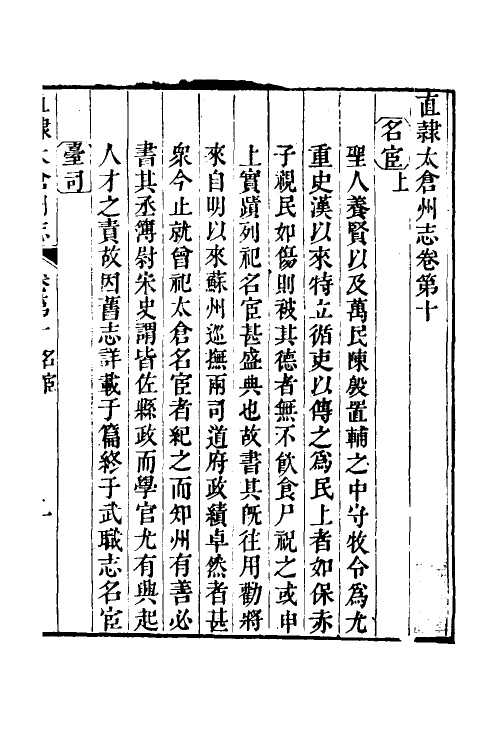 直隸太倉州志卷第十
名宦上
聖人養賢以及萬民陳殷置輔之中守牧令爲尤
重史漢以來特立循吏以傳之爲民上者如保赤
子視民如傷則被其德者無不飲食尸祝之或申
上實蹟列祀名宦甚盛典也故書其旣往用勸將
來自明以來蘇州巡撫兩司道府政績卓然者甚
衆今止就曾祀太倉名宦者紀之而知州有善必
書其丞簿尉宋史謂皆佐縣政而學官尤有興起
人才之責故因舊志詳載于篇終于武職志名宦
臺司
直隸太倉州志 卷第十 名宦 一